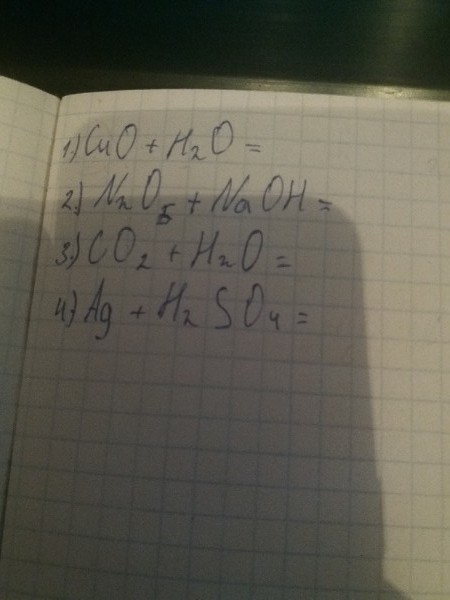 1.) CuO + H₂O =
2.) N₂O₅ + NaOH =
3.) CO₂ + H₂O =
4) Ag + H₂SO₄ =